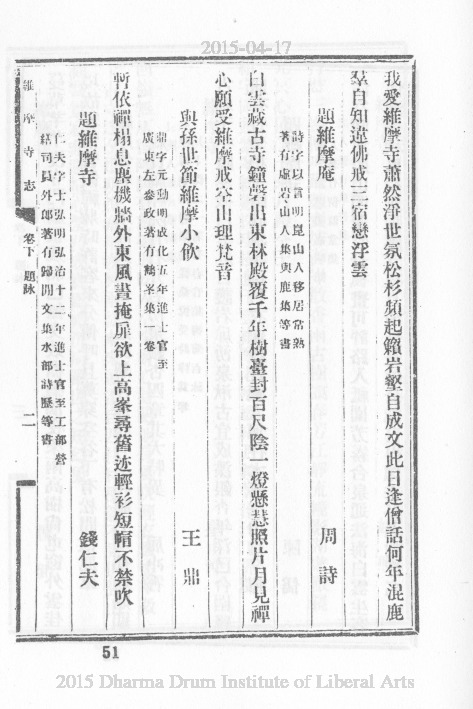 2015-04-17
我愛維摩寺蕭然淨世氛松杉頻起籟岩壑自成文此日逢僧話何年混鹿
羣自知違佛戒三宿戀浮雲
題維摩庵 周詩
詩字以言明崑山人移居常熟
著有虛岩山人集與鹿集等書
白雲藏古寺鐘磬出東林殿覆千年樹臺封百尺陰一燈懸慧照片月見禪
心願受維摩戒空山理梵音
與孫世節維摩小飲 王鼎
鼎字元勳明成化五年進士官至
廣東左參政著有鶴峯集一卷
暫依禪榻息塵機牆外東風晝掩扉欲上高峯尋舊迹輕衫短帽不禁吹
題維摩寺 錢仁夫
仁夫字士弘明弘治十二年進士官至工部營
繕司員外郎著有歸閒文集水部詩歷等書
維摩寺志 卷下 題詠 二一
51
2015 Dharma Drum Institute of Liberal Arts